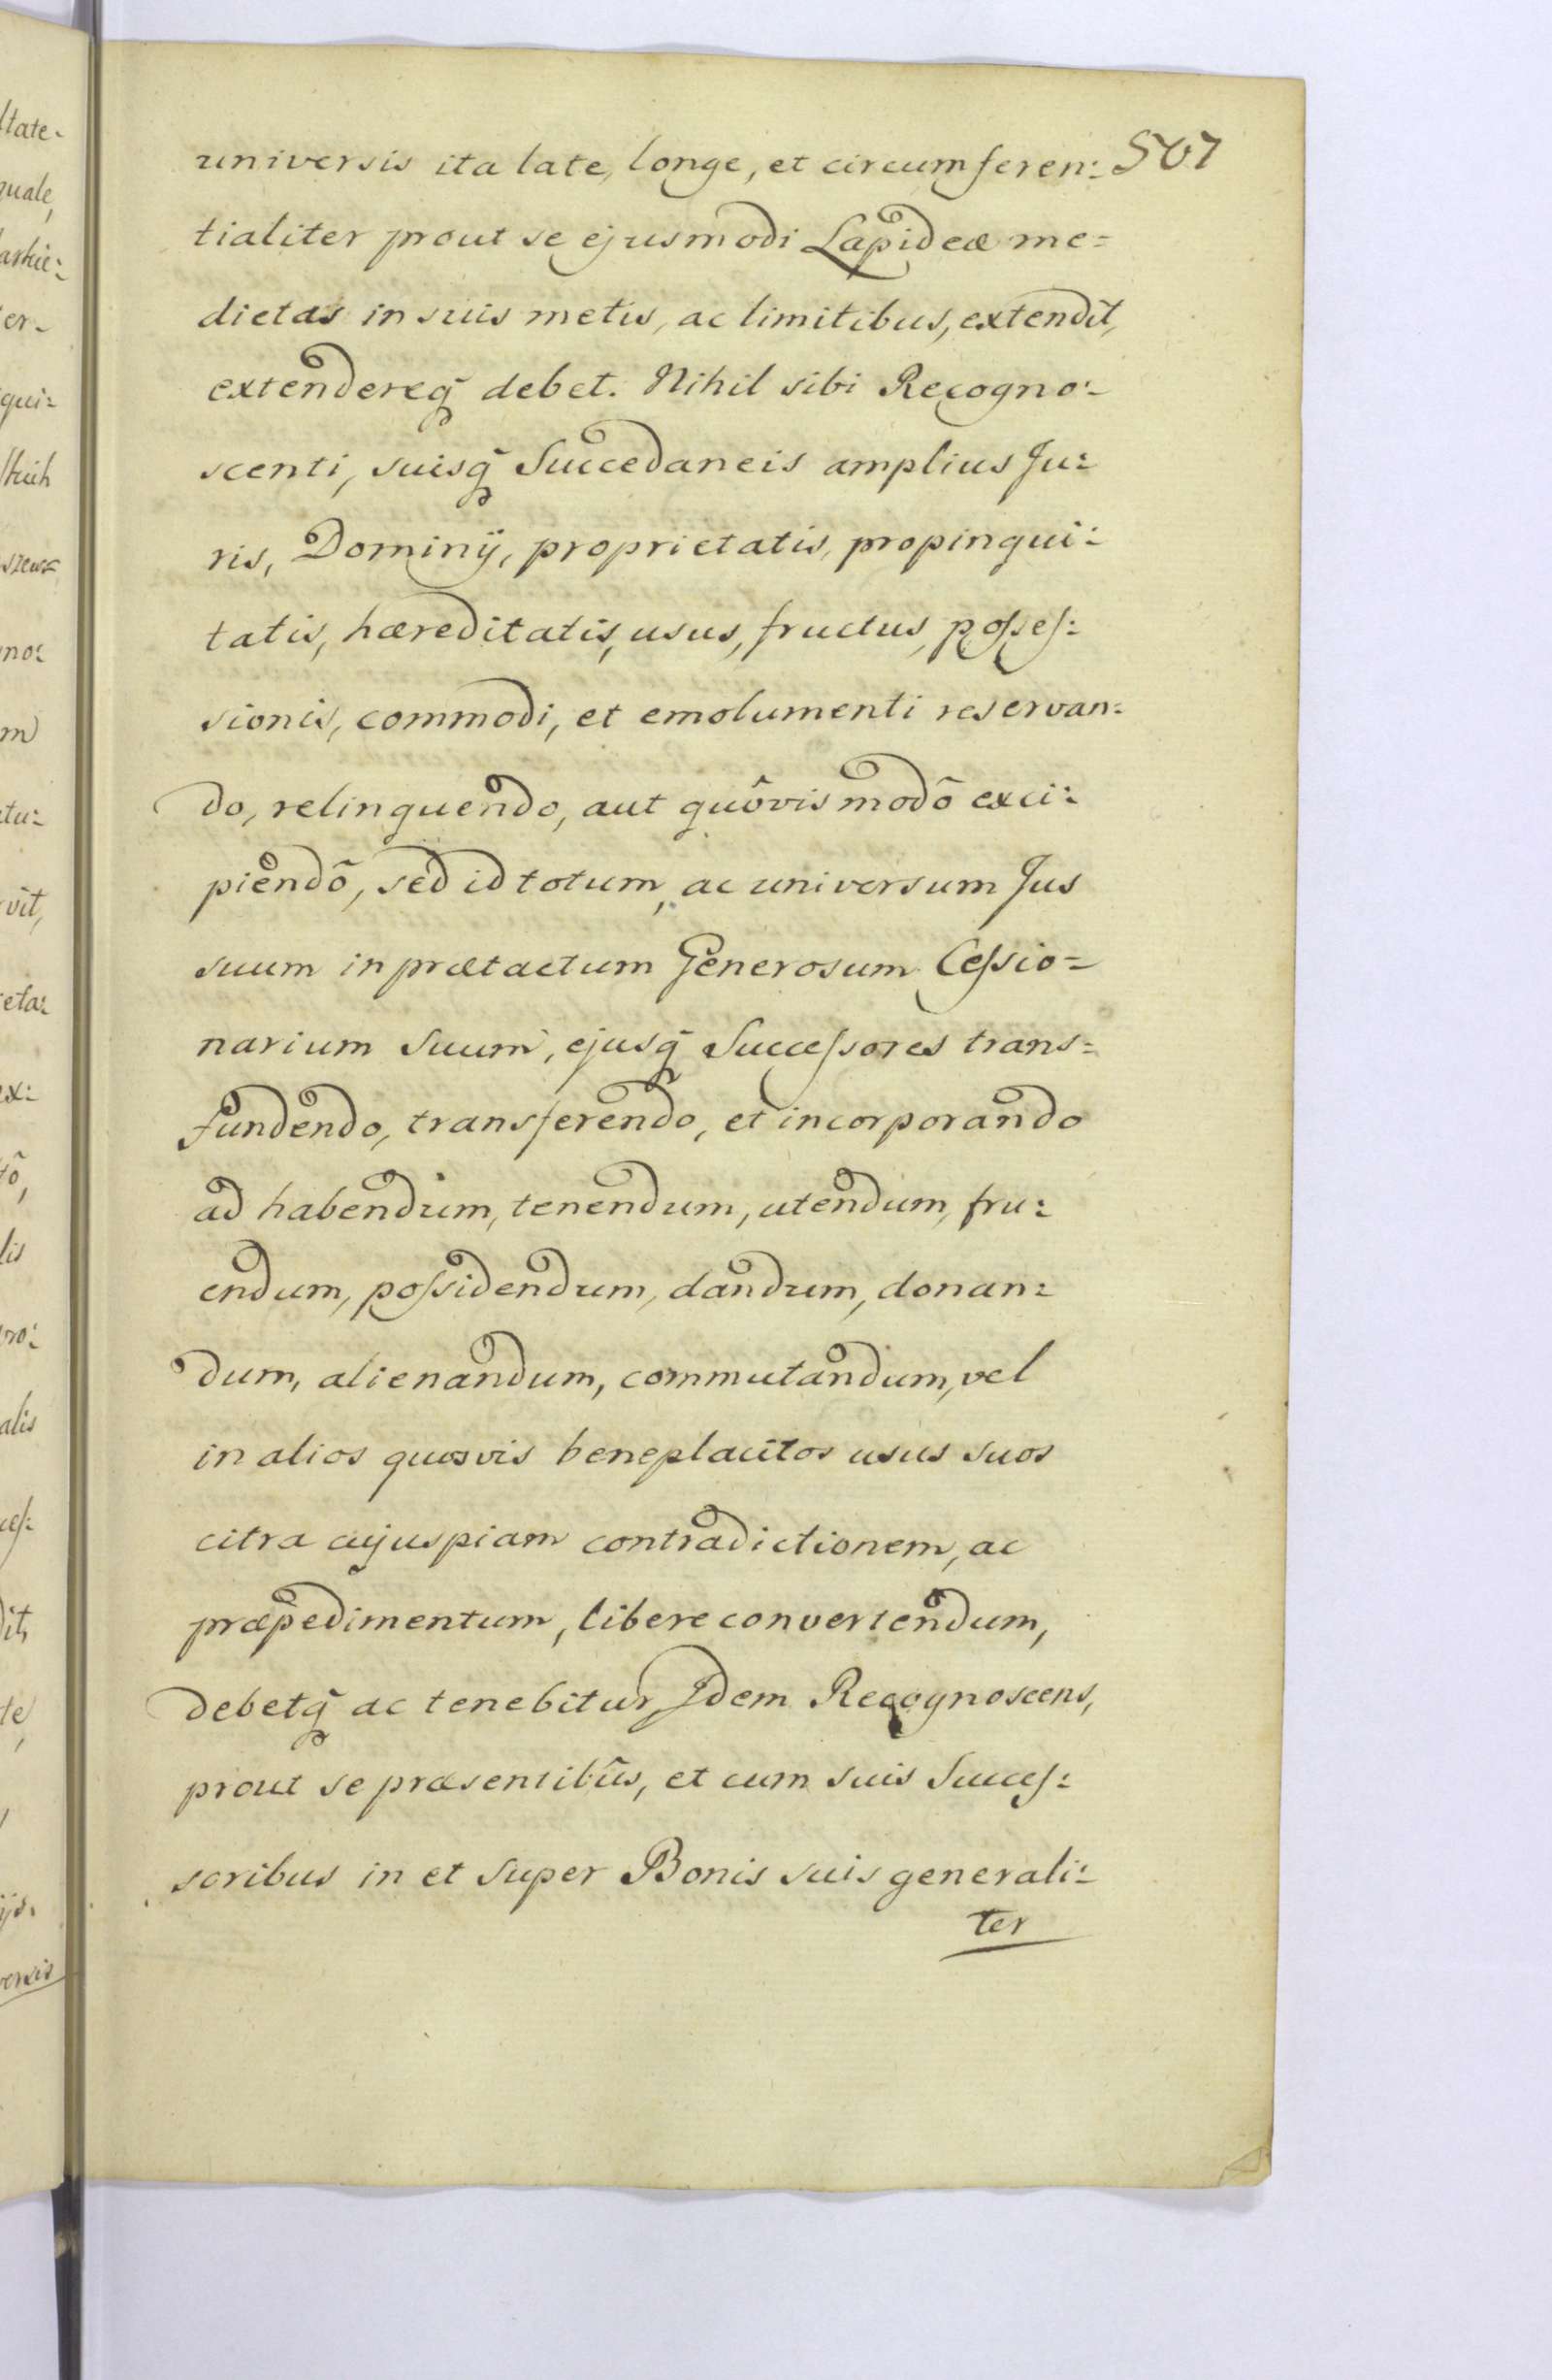 universis ita late, longe, et circumferen: 507
tialiter prout se ejusmodi Lapideæ me=
dietas in suis metis, ac limitibus, extendit,
extendereq̃ debet. Nihil sibi Recogno:
scenti, suisq̃ Succedaneis amplius Ju:
ris, Dominÿ, proprietatis, propinqui:
tatis, hæreditatis, usus, fructus, posses:
sionis, commodi, et emolumenti reservan:
do, relinquendo, aut quôvis modô exci:
piendô, sed id totum, ac universum Jus
suum in prætactum Generosum Cessio=
narium Suum, ejusq̃ Successores trans=
fundendo, transferendo, et incorporando
ad habendum, tenendum, utendum, fru:
endum, possidendum, dandum, donan:
dum, alienandum, commutandum, vel
in alios quosvis beneplacitos usus suos
citra cujuspiam contradictionem, ac
præpedimentum, libere convertendum,
debetq̃ ac tenebitur, Idem Recognoscens,
prout se præsentibûs, et cum suis Succes:
soribus in et super Bonis suis generali:
ter
ltate.
quale,
er.
qui:
no:
m
tu:
vit,
eta:
ex:
tô,
lis
no:
alis
ces:
dit,
te,
ijs.
versis